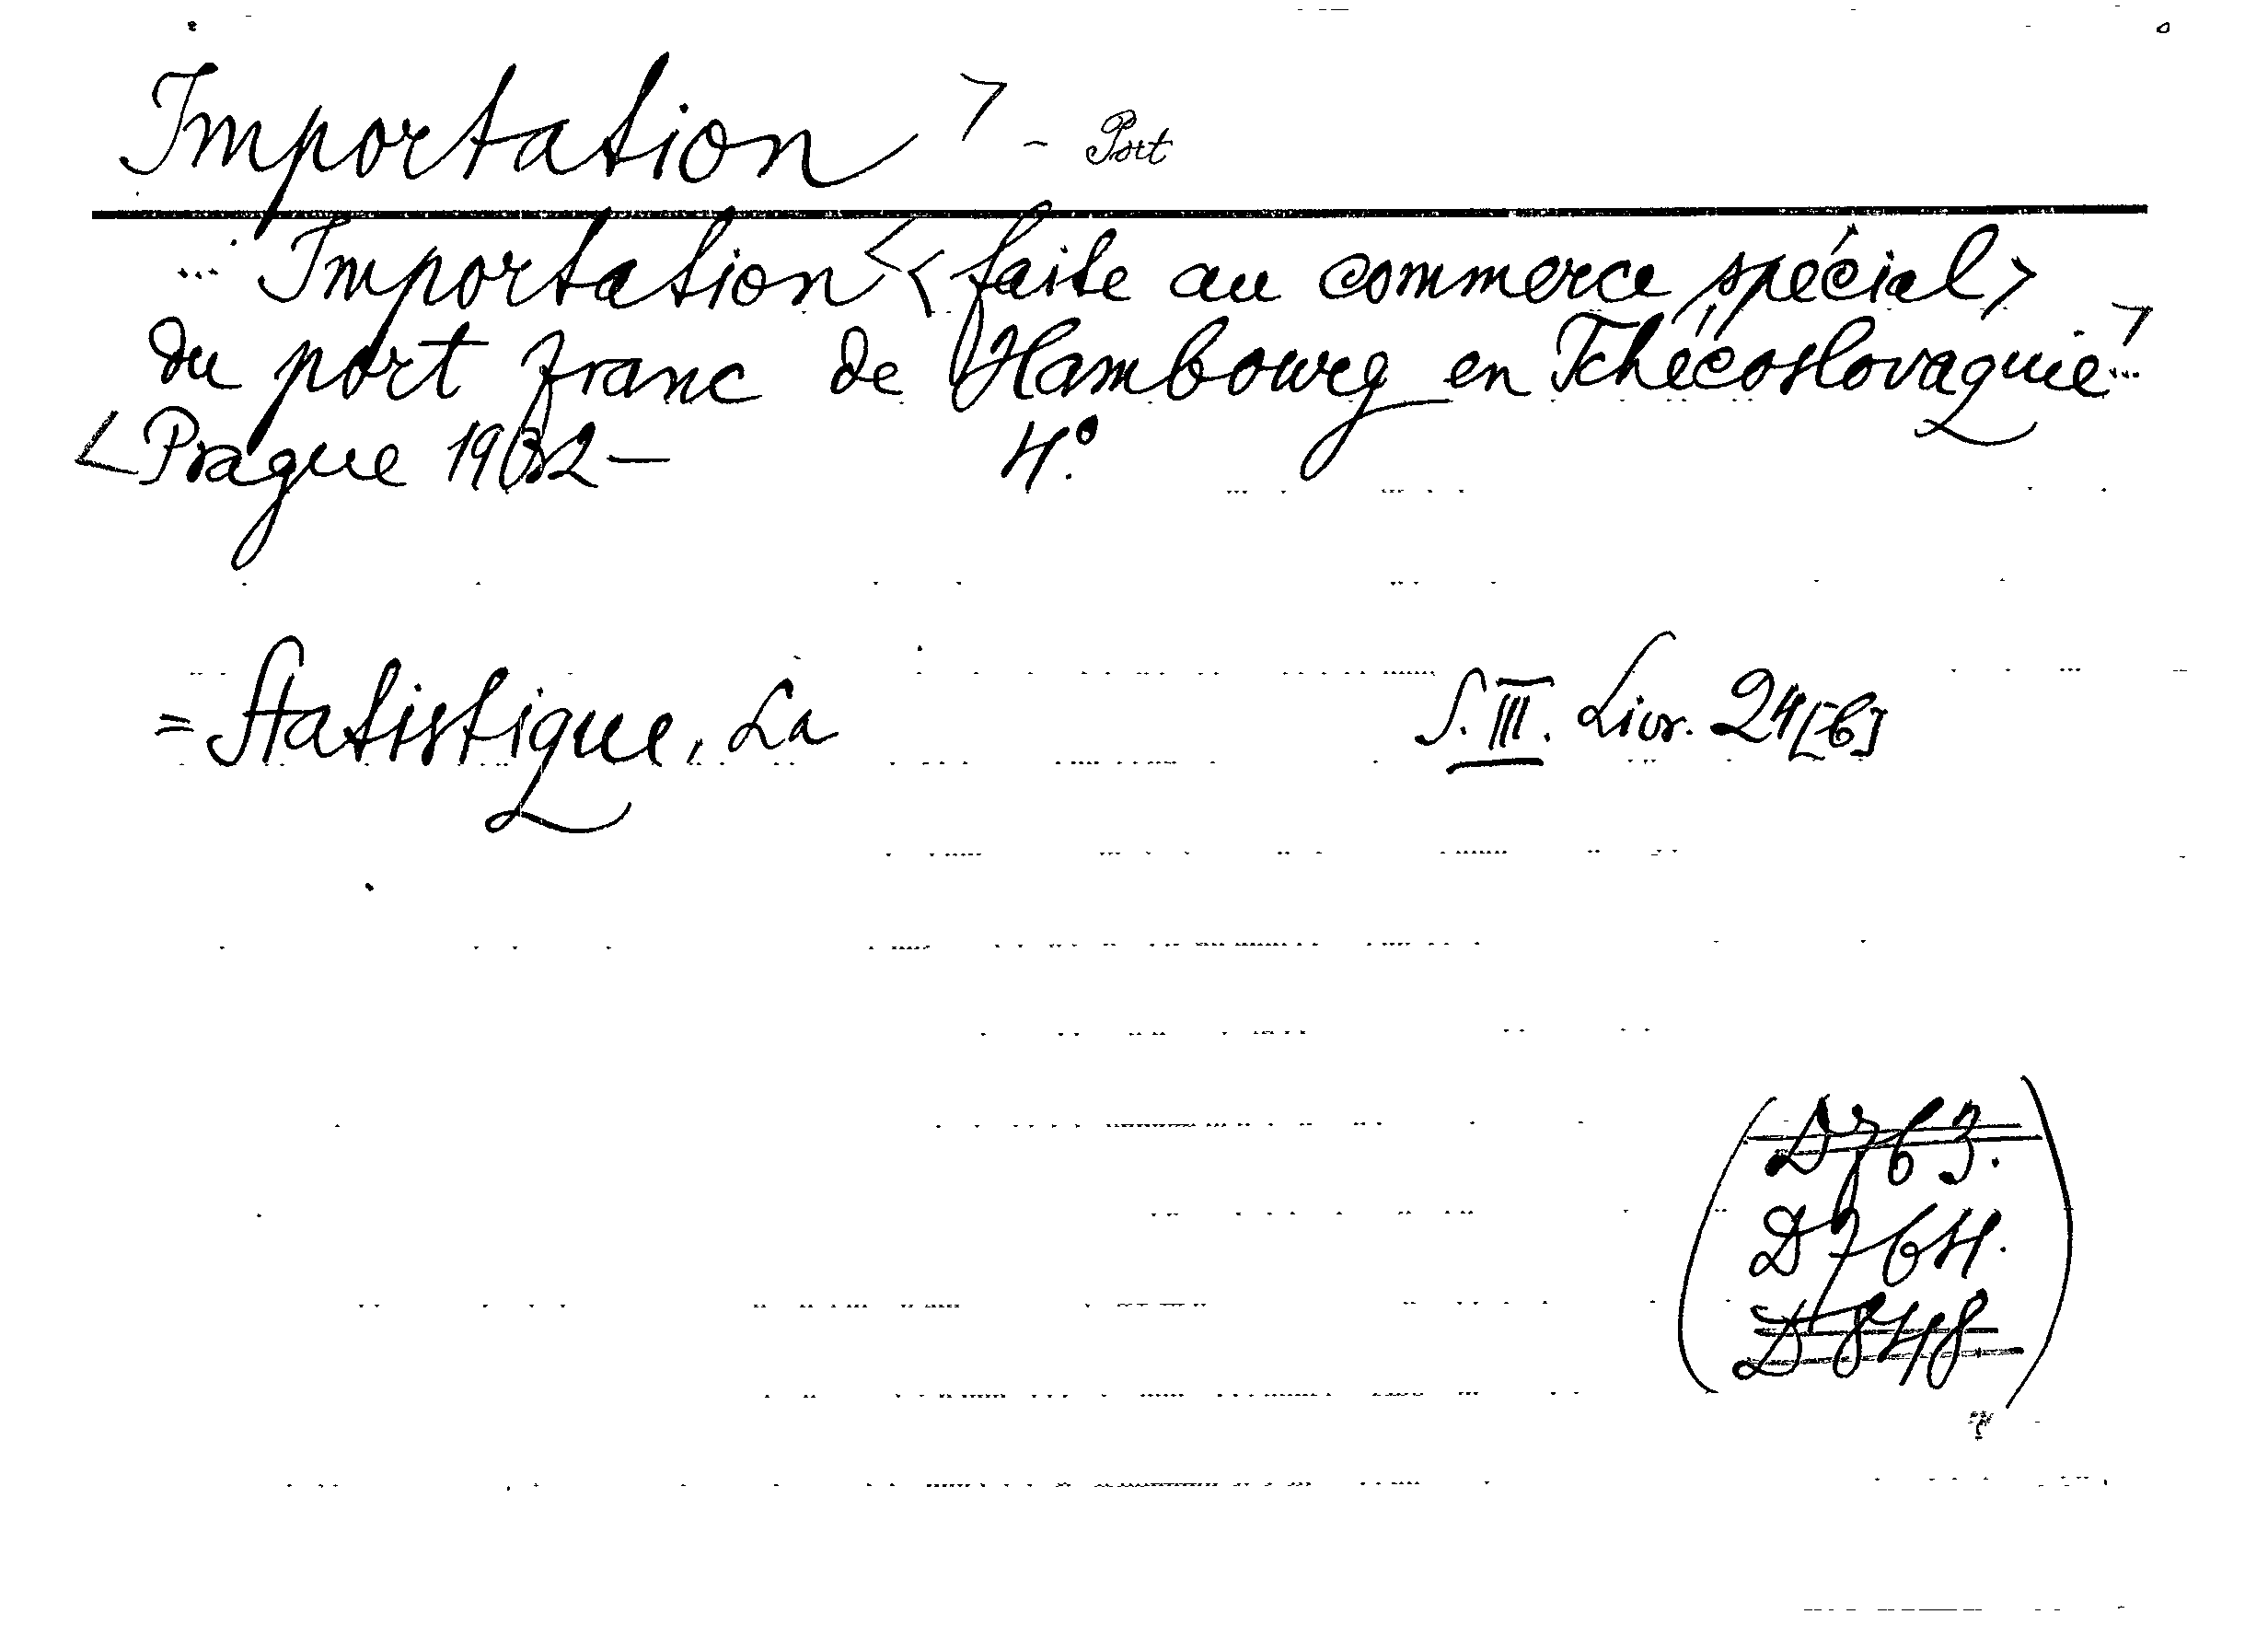 Importation > - Port
... Importation < < faite au commerce spécial >
du port franc de Hambourg en Tchécoslovaquie ... >
< Prague 1932— 4°.
= Statistique, La S. III. Livr. 24[b]
(D763.
D764.
D848.)